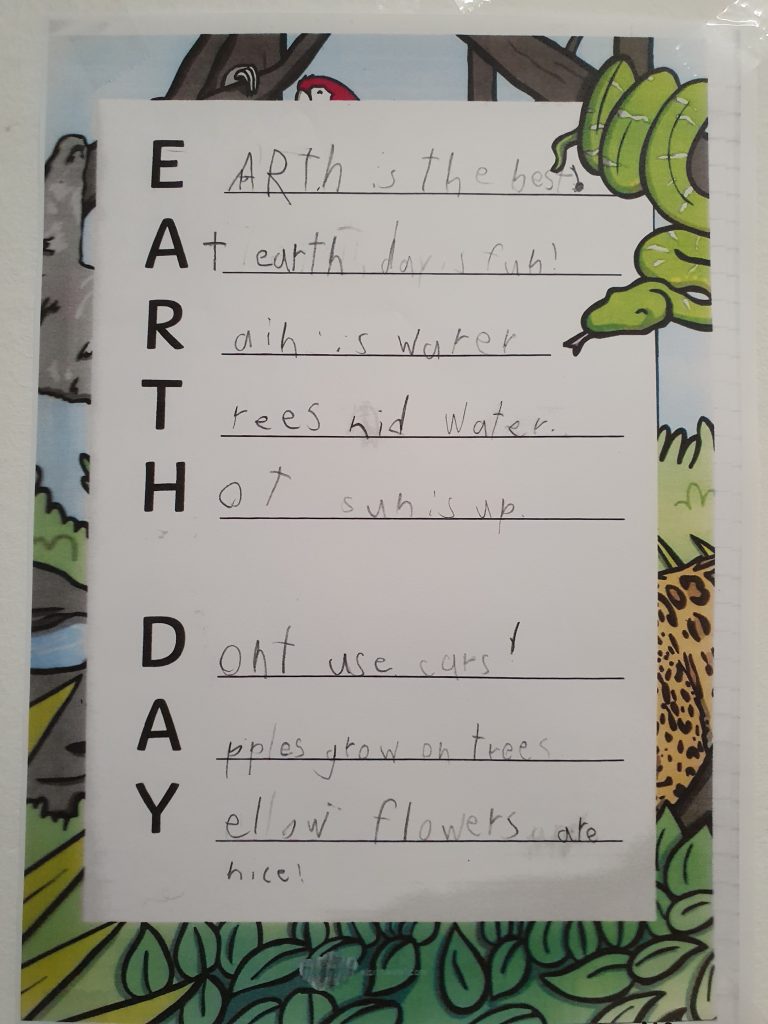 E ARth is the best!
A t earth day is fun!
R ain is water
T rees nid water.
H ot sun is up.
D ont use cars!
A pples grow on trees
Y ellow flowers are
nice!